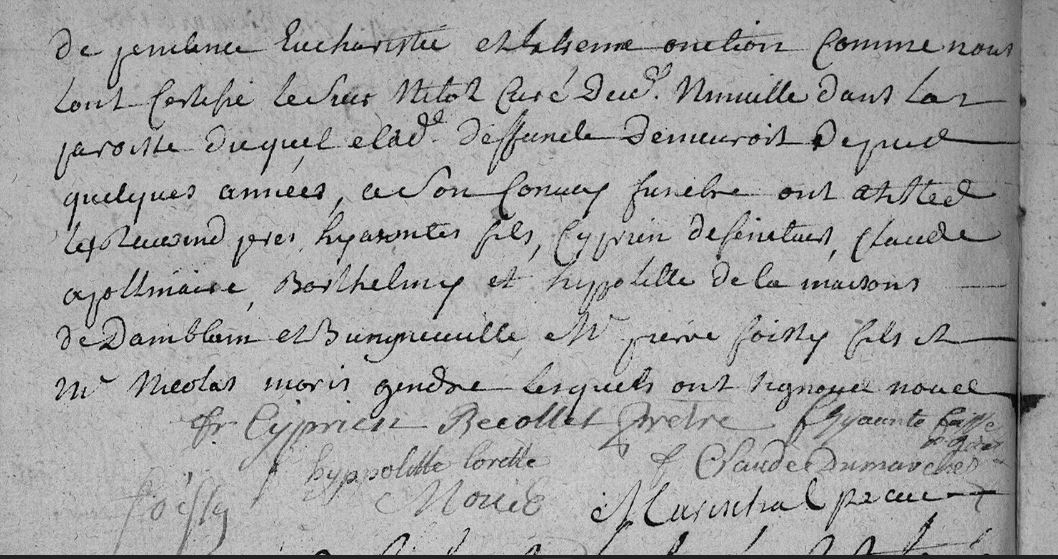 de penitence Eucharistie et Extreme onction Comme nous
lont Certifié le Sieur Nitot Curé dud. Ninville dans la
paroisse duquel elad. deffuncte Demeuroit Depuis
quelques années, a Son Convoy funebre ont assisted
les Reverend peres hyacintes fils, Cyprien definiteur, Claude
apollinaire, Barthelmy et hyppolitte de la maisons
de Damblain et Bungneville, Mr pierre foissy fils et
Mr Nicolas moris gendre lesquels ont signé avec nous
fr Cyprien Recollet Pretre f hyacinte
hyppolitte lorette f Claude Dumarchet
foissy Moris Mareschal